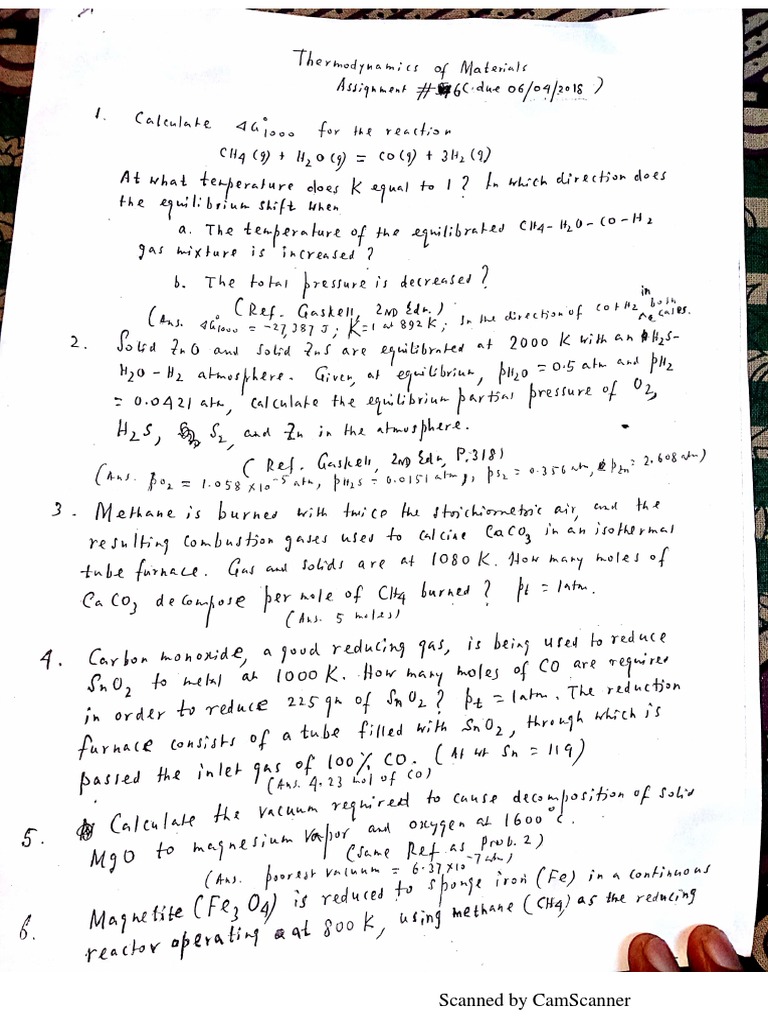 Thermodynamics of Materials
Assignment # 6 (due 06/04/2018)
1. Calculate ΔG°1000 for the reaction
CH4 (g) + H2O (g) = CO (g) + 3H2 (g)
At what temperature does K equal to 1? In which direction does
the equilibrium shift when
a. The temperature of the equilibrated CH4-H2O-CO-H2
gas mixture is increased?
b. The total pressure is decreased?
(Ref. Gaskell, 2ND Edn.)
(Ans. ΔG°1000 = -27,387 J; K=1 at 892 K; In the direction of CO+H2 in both cases.
2. Solid ZnO and solid ZnS are equilibrated at 2000 K with an H2S-
H2O-H2 atmosphere. Given, at equilibrium, pH2O = 0.5 atm and pH2
= 0.0421 atm, calculate the equilibrium partial pressure of O2,
H2S, S2, and Zn in the atmosphere.
(Ref. Gaskell, 2ND Edn, P.318)
(Ans. pO2 = 1.058 x10-5 atm, pH2S = 0.0151 atm, pS2 = 0.356 atm, pZn = 2.608 atm)
3. Methane is burned with twice the stoichiometric air, and the
resulting combustion gases used to calcine CaCO3 in an isothermal
tube furnace. Gas and solids are at 1080 K. How many moles of
CaCO3 decompose per mole of CH4 burned? pt = 1atm.
(Ans. 5 moles)
4. Carbon monoxide, a good reducing gas, is being used to reduce
SnO2 to metal at 1000 K. How many moles of CO are required
in order to reduce 225 gm of SnO2? pt = 1atm. The reduction
furnace consists of a tube filled with SnO2, through which is
passed the inlet gas of 100% CO. (At wt Sn = 119)
(Ans. 4.23 mol of CO)
5. Calculate the vacuum required to cause decomposition of solid
MgO to magnesium vapor and oxygen at 1600°C.
(Same Ref as Prob. 2)
(Ans. poorest vacuum = 6.37x10-7 atm)
6. Magnetite (Fe3O4) is reduced to sponge iron (Fe) in a continuous
reactor operating at 800 K, using methane (CH4) as the reducing
Scanned by CamScanner